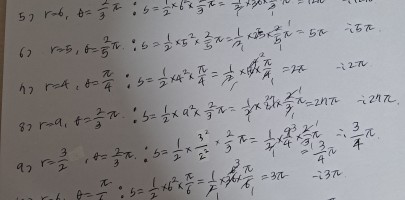 5) r=6, θ=2/3π ∴ S=1/2×6²×2/3π=1/2×36×2/3π=12π ∴12π
6) r=5, θ=2/5π ∴ S=1/2×5²×2/5π=1/2×25×2/5π=5π ∴5π
7) r=4, θ=π/4 ∴ S=1/2×4²×π/4=1/2×16×π/4=2π ∴2π
8) r=9, θ=2/3π ∴ S=1/2×9²×2/3π=1/2×81×2/3π=27π ∴27π.
9) r=3/2, θ=2/3π ∴ S=1/2×3²/2²×2/3π=1/2×9/4×2/3π=3/4π ∴3/4π
r=6, θ=π/6 ∴ S=1/2×6²×π/6=1/2×36×π/6=3π ∴3π